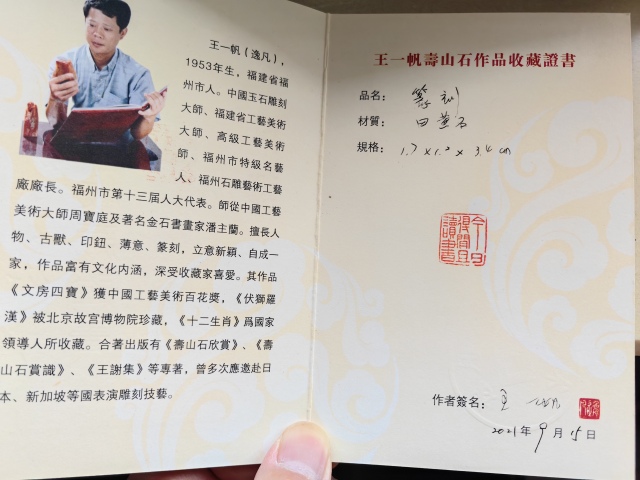 王一帆（逸凡），
1953年生，福建省福
州市人。中國玉石雕刻
大師、福建省工藝美術
大師、高級工藝美術
師、福州市特級名藝
人、福州石雕藝術工藝
廠廠長。福州市第十三届人大代表。師從中國工藝
美術大師周寶庭及著名金石書畫家潘主蘭。擅長人
物、古獸、印鈕、薄意、篆刻，立意新穎、自成一
家，作品富有文化内涵，深受收藏家喜愛。其作品
《文房四寶》獲中國工藝美術百花獎，《伏獅羅
漢》被北京故宫博物院珍藏，《十二生肖》爲國家
領導人所收藏。合著出版有《壽山石欣賞》、《壽
山石賞識》、《王謝集》等專著，曾多次應邀赴日
本、新加坡等國表演雕刻技藝。
王一帆壽山石作品收藏證書
品名：篆刻
材質：田黄石
規格：1.7×1.2×3.4cm
今日
得閒且
讀書
作者簽名：王一帆
2021年9月15日